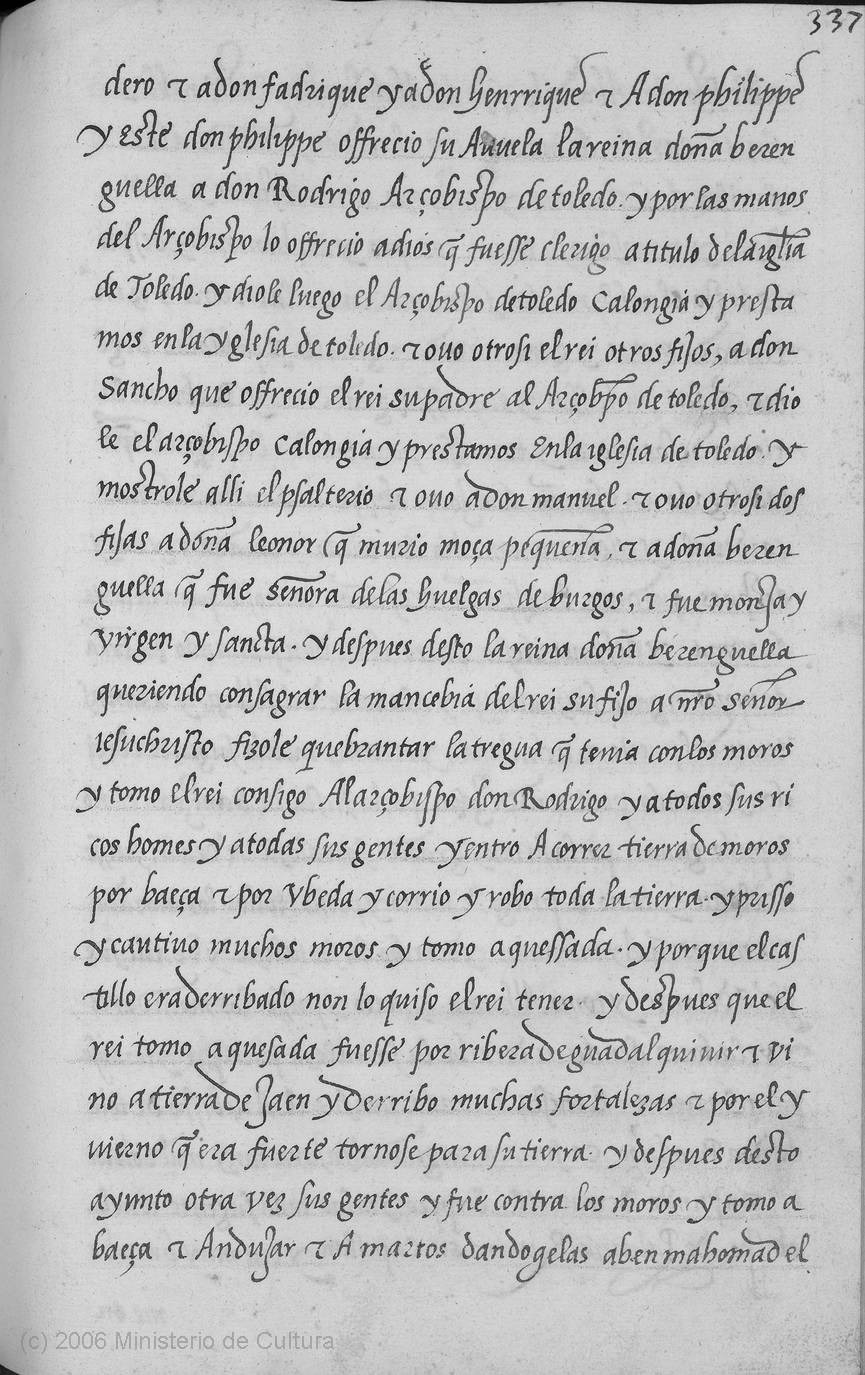 337
dero τ adon fadrique y adon henrrique τ A don philippe
y Este don philippe offrecio su Auuela la reina doña beren
guella a don Rodrigo Arçobispo de toledo. y por las manos
del Arçobispo lo offrecio adios q̃ fuesse clerigo atitulo dela iglia
de Toledo. y diole luego el Arçobispo detoledo Calongia y presta
mos enla yglesia de toledo. τ ouo otrosi el rei otros fijos, a don
Sancho que offrecio el rei su padre al Arçobpo de toledo, τ dio
le el arçobispo Calongia y prestamos Enla iglesia de toledo. y
mostrole alli el psalterio τ ouo adon manuel. τ ouo otrosi dos
fijas a doña leonor q̃ murio moça pequeña, τ a doña beren
guella q̃ fue señora delas huelgas de burgos, τ fue monja y
virgen y sancta. y despues desto la reina doña berenguella
queriendo consagrar la mancebia del rei su fijo a nr̃o señor
iesuchristo fizole quebrantar la tregua q̃ tenia conlos moros
y tomo el rei consigo Al arçobispo don Rodrigo y a todos sus ri
cos homes y atodas sus gentes y entro A correr tierra de moros
por baeça τ por Vbeda y corrio y robo toda la tierra. y prisso
y cautiuo muchos moros y tomo a quessada. y porque el cas
tillo era derribado non lo quiso el rei tener. y despues que el
rei tomo a quesada fuesse por ribera de guadalquiuir τ vi
no a tierra de Jaen y derribo muchas fortalezas τ por el y
uierno q̃ era fuerte tornose para su tierra. y despues desto
ayunto otra vez sus gentes y fue contra los moros y tomo a
baeça τ Andujar τ A martos dandogelas aben mahomad el
(c) 2006 Ministerio de Cultura